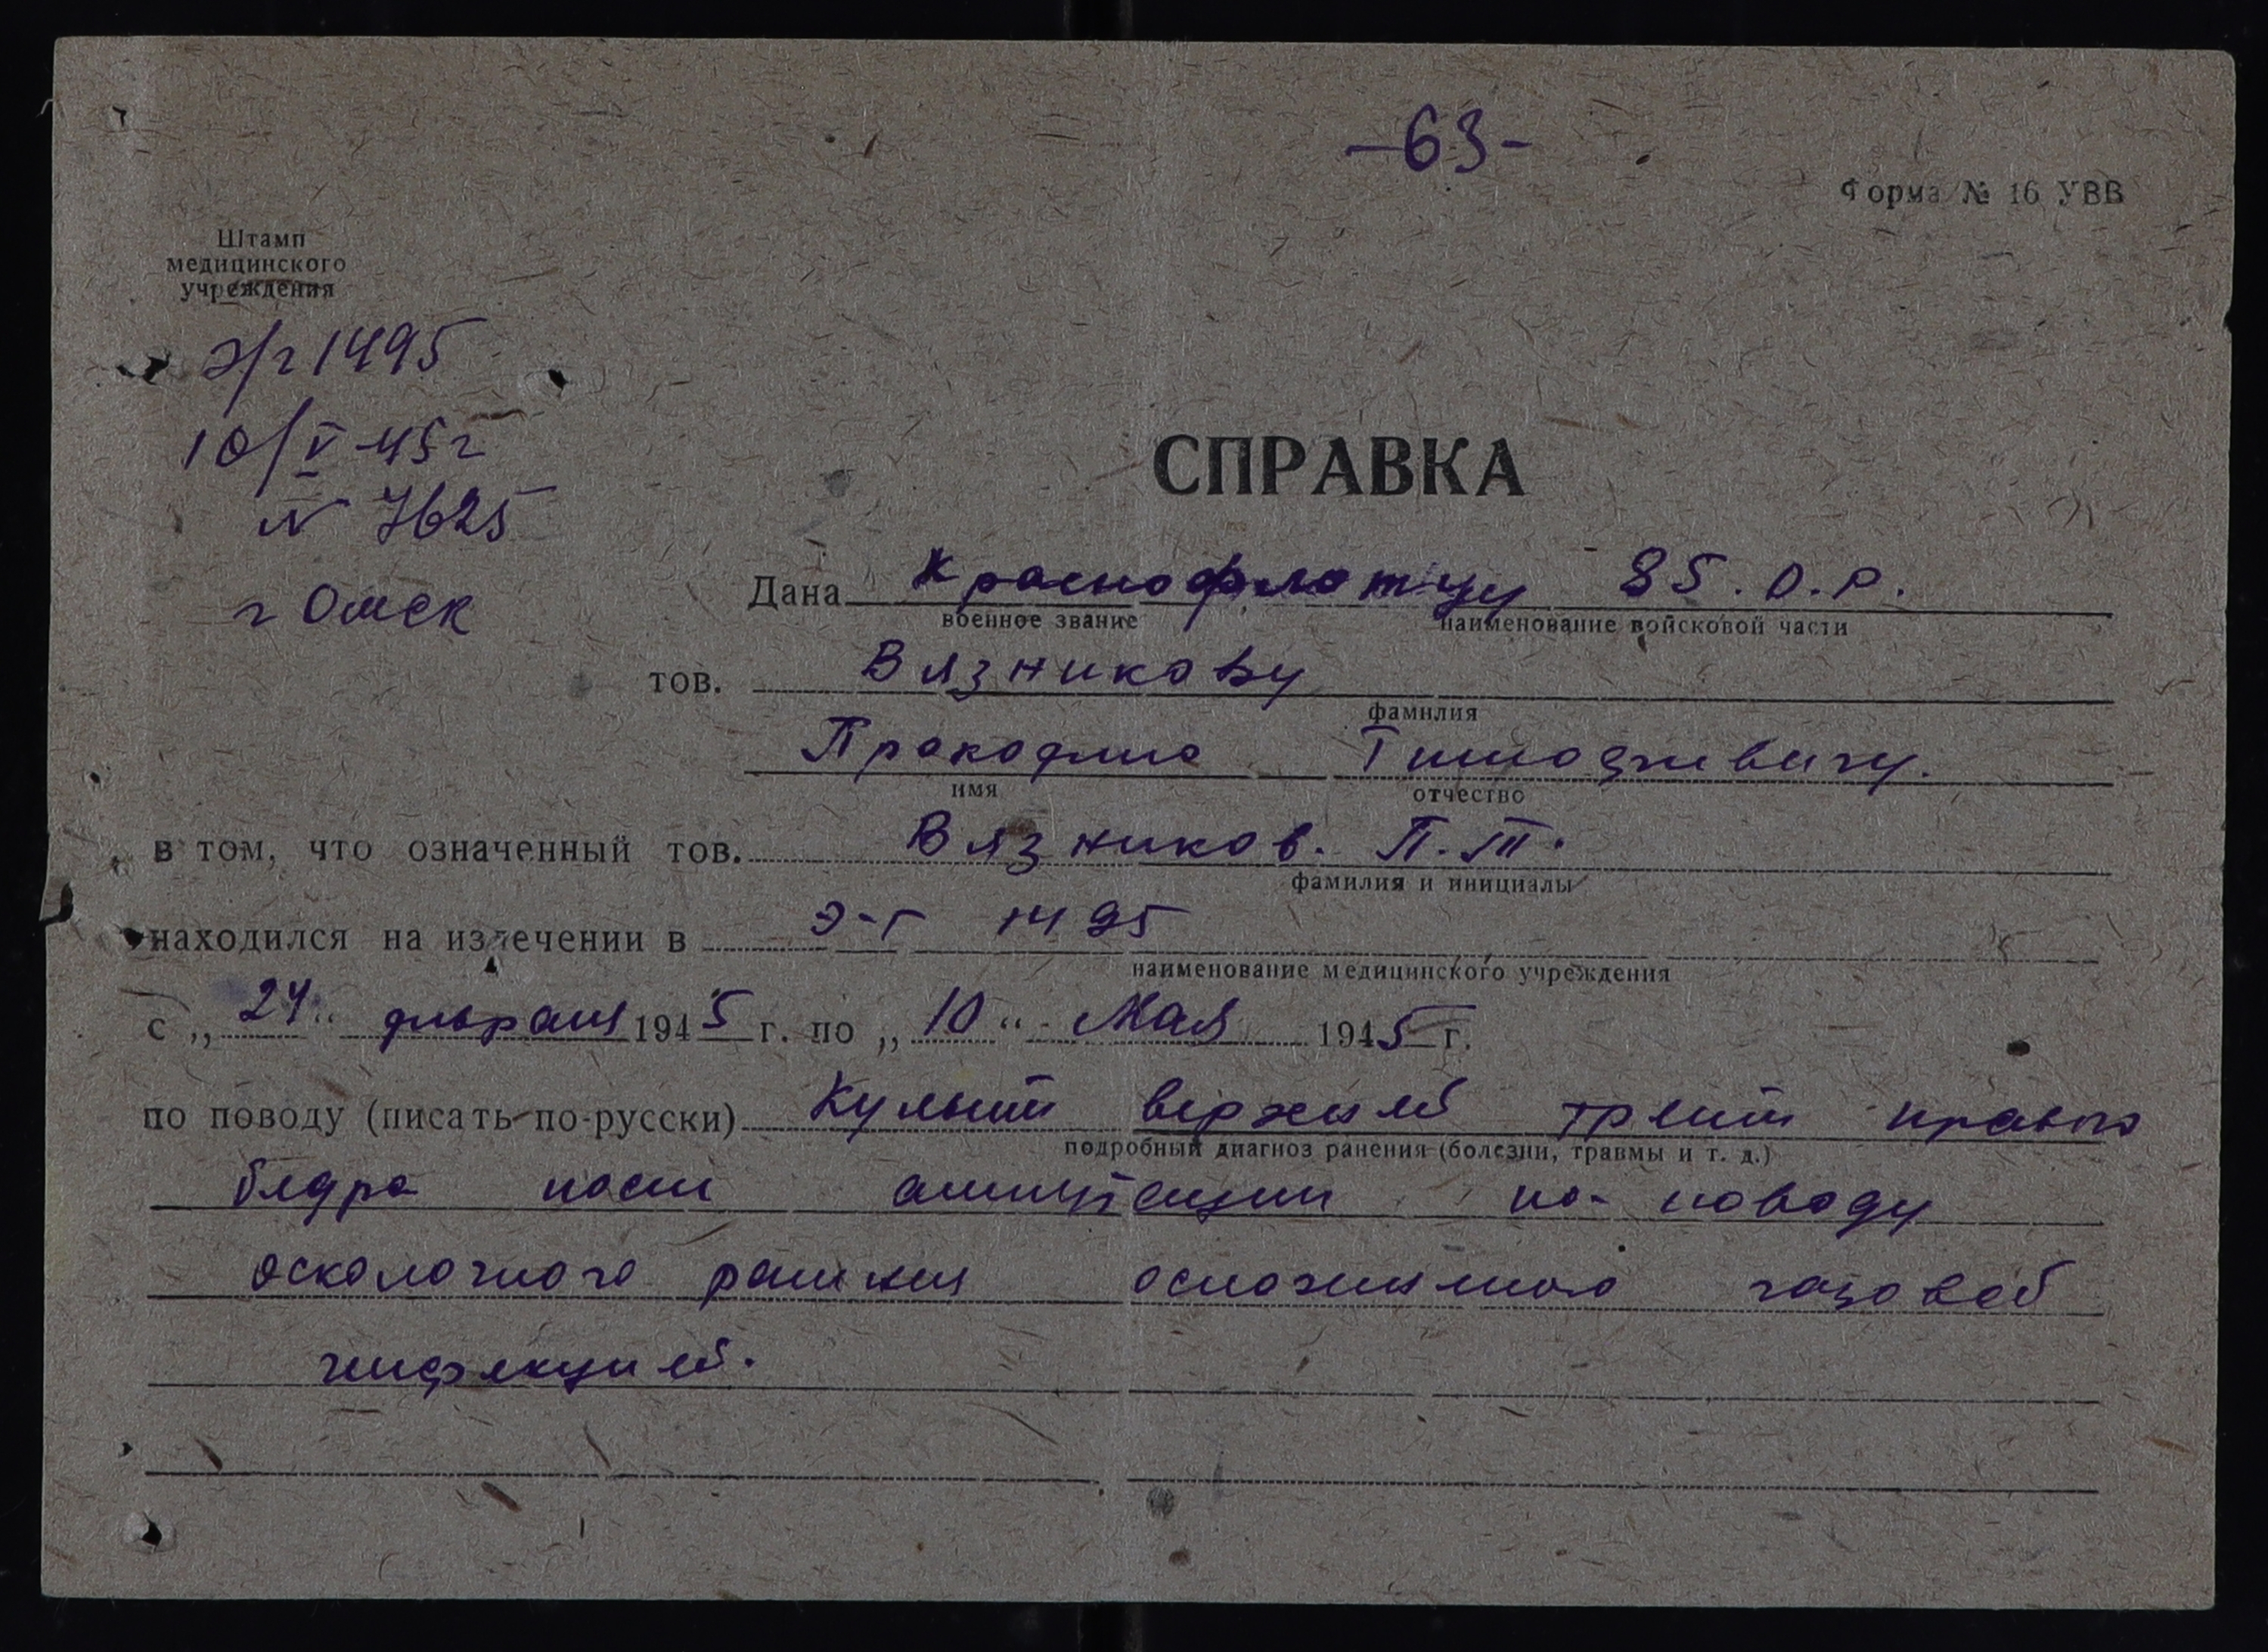 -63-
Форма № 16 УВВ
Штамп
медицинского
учреждения
э/г 1495
10/V 45 г
N 7625
г Омск
СПРАВКА
Дана Краснофлотцу 85. О.Р.
военное звание наименование войсковой части
тов. Вязникову
фамилия
Прокофию Тимофеевичу.
имя отчество
в том, что означенный тов. Вязников. П.Т.
фамилия и инициалы
находился на излечении в Э-Г 1495
наименование медицинского учреждения
с „24“ февраля 1945 г. по „10“ Мая 1945 г.
по поводу (писать по-русски) Культи верхней трети правого
подробный диагноз ранения (болезни, травмы и т. д.)
бедра после ампутации по поводу
осколочного ранения осложненного газовой
инфекцией.